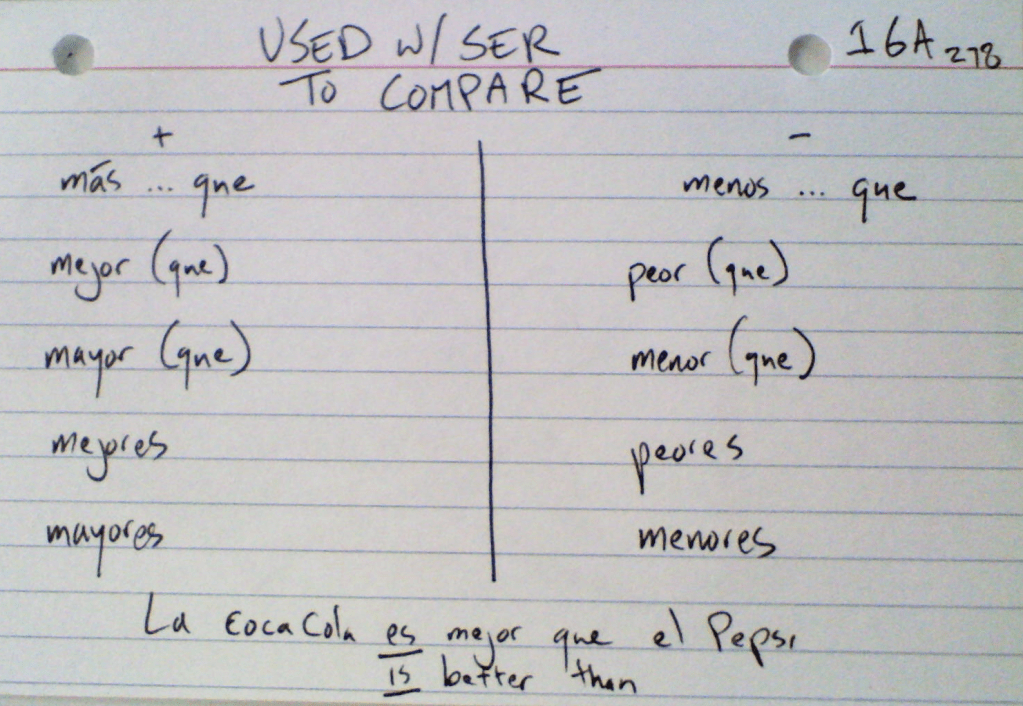 USED W/ SER 16A 278
TO COMPARE
+ -
más ... que menos ... que
mejor (que) peor (que)
mayor (que) menor (que)
mejores peores
mayores menores
La CocaCola es mejor que el Pepsi
is better than